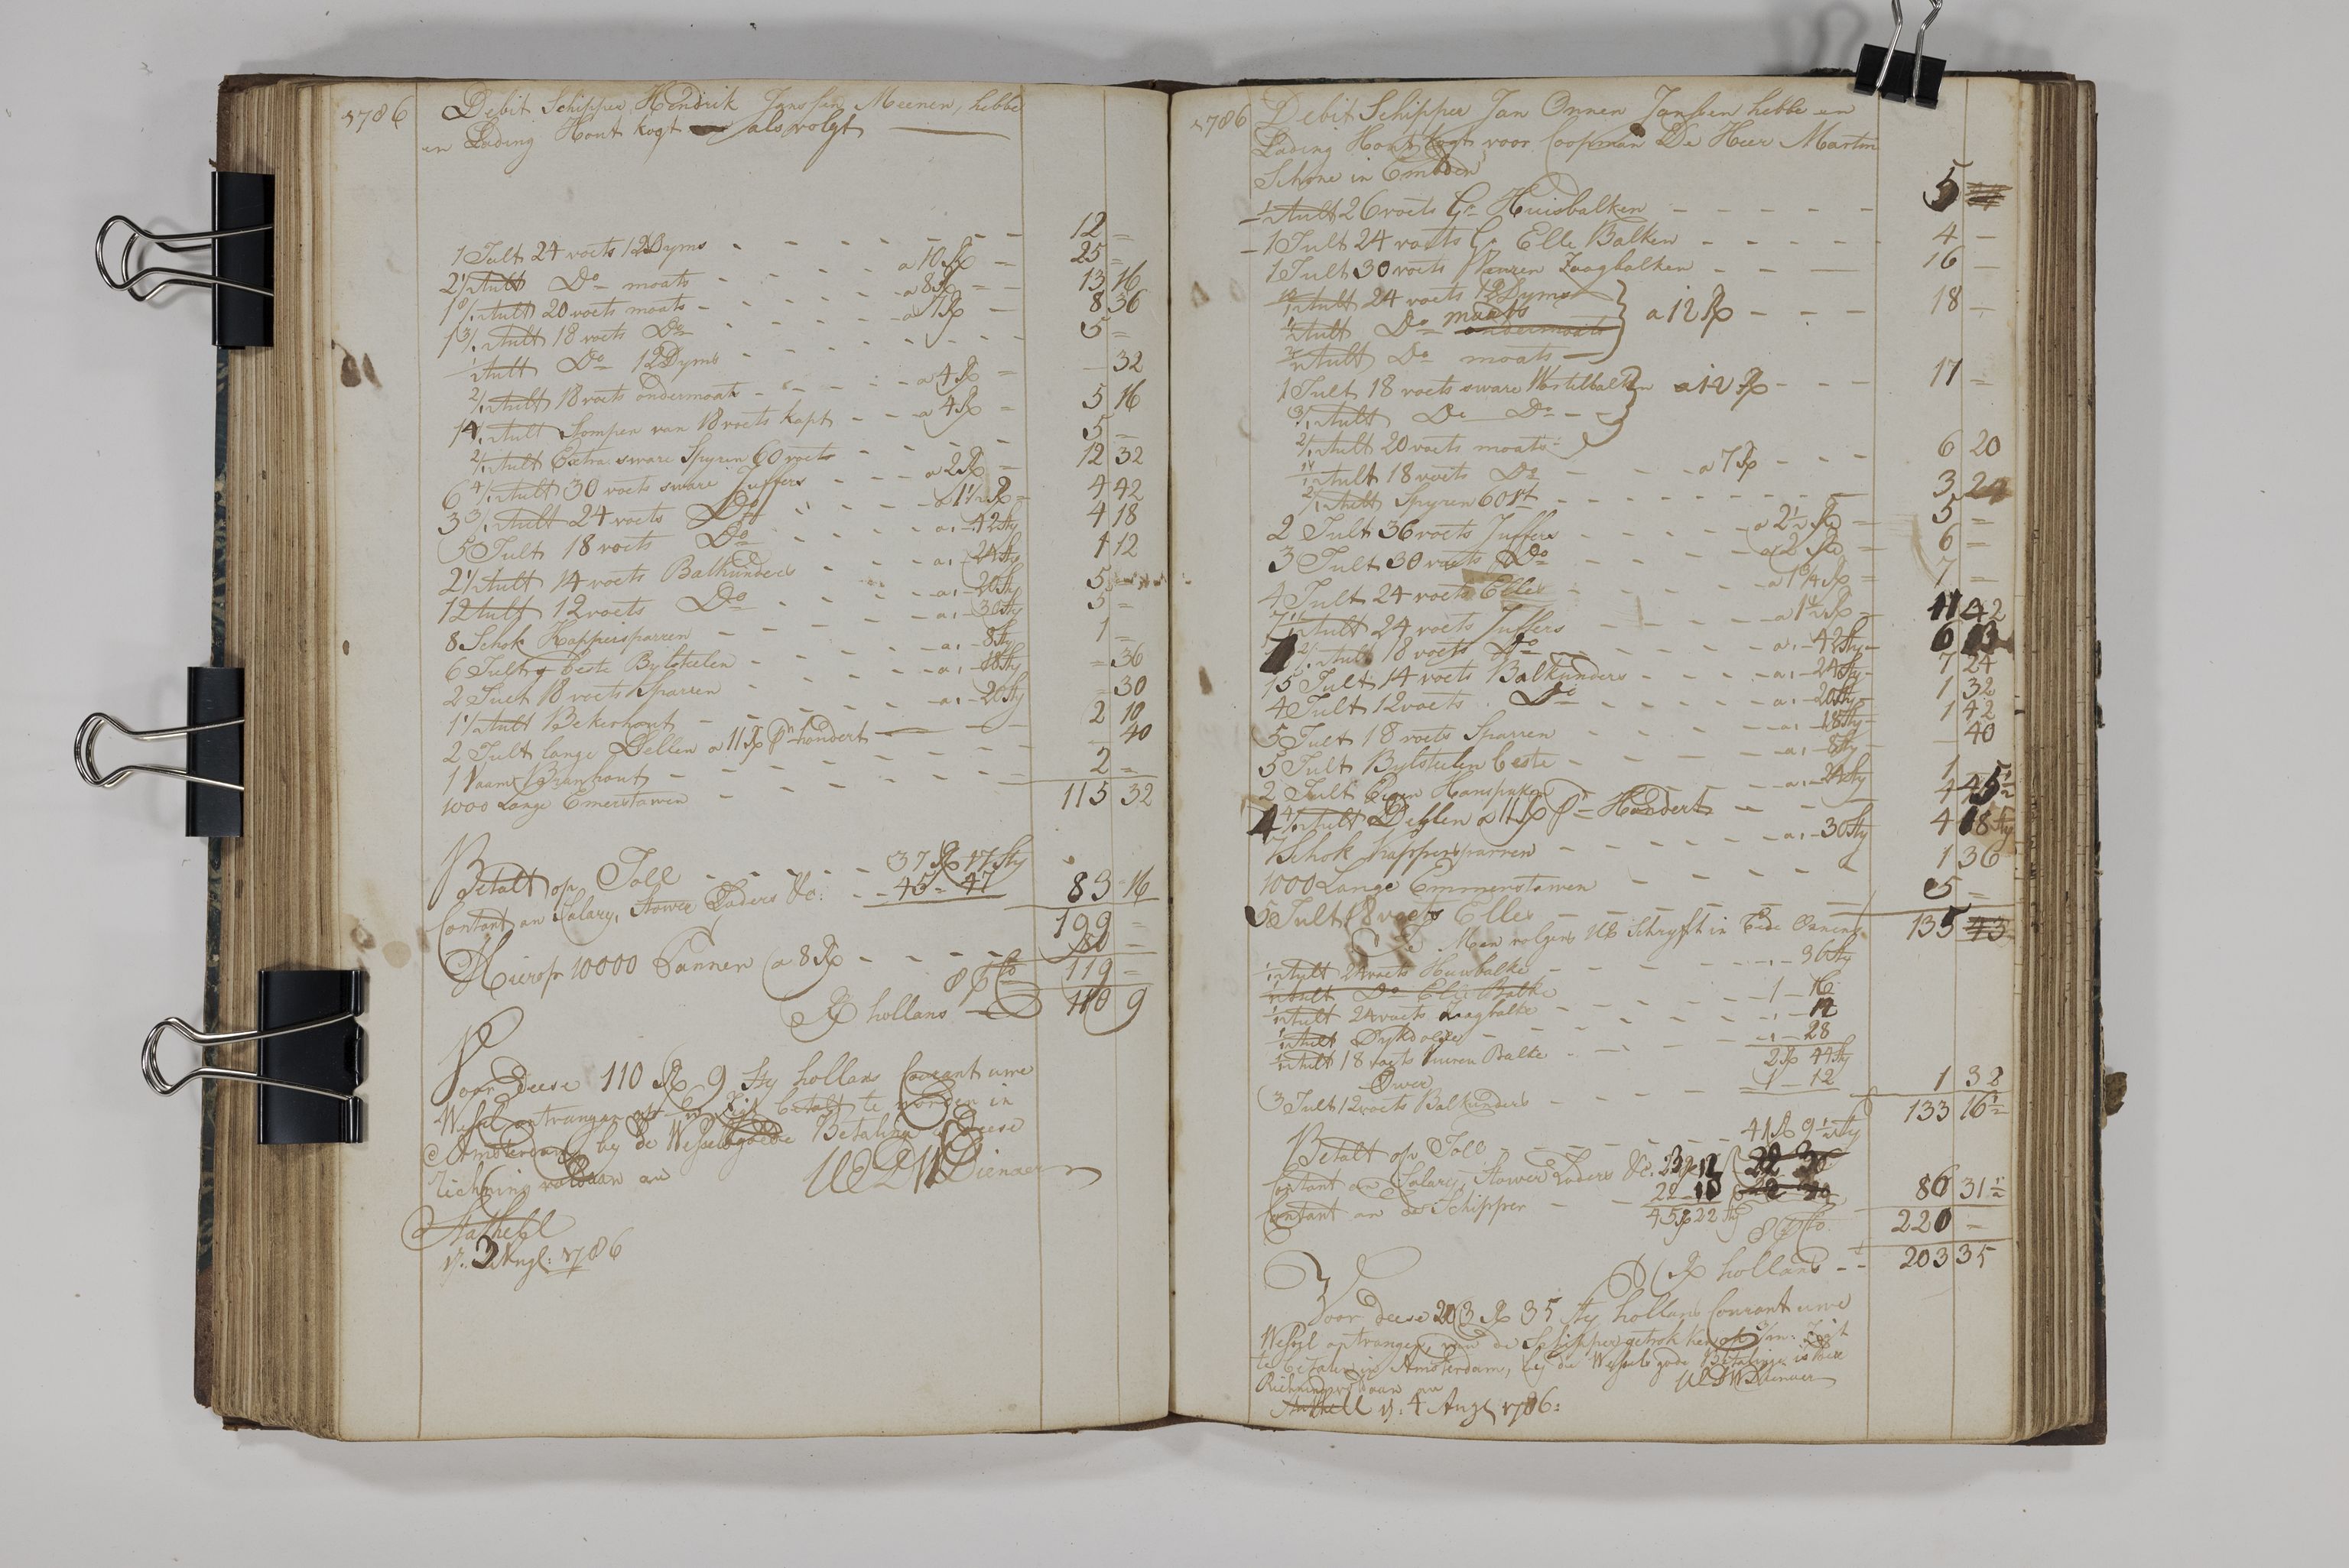 1786 Debit Schipper Hendrik Janssen Meenen, hebbe
en Lading Hout kogt als volgt
1 Tult 24 voets 12 Dyms - - - - 12 =
2 1/ Tult Do moats - - - a 10 R = 25 =
1 8/ Tult 20 voets moats - - - a 8 R = 13 16
1 3/ Tult 18 voets Do - - - a 7 R - 8 36
1/ Tult Do 12 Dyms - - - 5 =
2/ Tult 18 voets ondermoats - - - a 4 R = - 32
1 4/ Tult Stompen van 18 voets kapt - - a 4 R = 5 16
2/ Tult Extra sware Spyren 60 voets - - - 5 -
6 4/ Tult 30 voets sware Juffers - - a 2 R = 12 32
3 3/ Tult 24 voets Do - - a 1 1/2 R = 4 42
5 Tult 18 voets Do - - - a, - 42 Sty 4 18
2 1/ Tult 14 voets Balkunders - - a, - 24 Sty 1 12
12 Tult 12 voets Do - - - a, - 20 Sty 5
8 Schok Kappersparren - - - a, - 30 Sty 5 =
6 Tult beste Bylsteelen - - - a, - 8 Sty 1 =
2 Tult 18 voets Sparren - - - a, - 18 Sty = 36
1 1/ Tult Bekerhout - - - a, - 20 Sty = 30
2 Tult lange Dellen a 11 R pr hondert - - 2 10
1 Vaam Branhout - - - - 40
1000 Lange Emerstawen - - - 2 =
115 32
Betalt op Toll - - - 37 R 17 Sty
Contant an Salary, Stower Laders &c: - - 45 - 47 83 16
199 =
Hierop 10000 Pannen a 8 R - - - 80 -
8 p Co 119 =
R hollans - 110 9
Voor deese 110 R 9 Sty hollans Courant uwe
Wessel ontvangen op Zigt betalt te worden in
Amsterdam, by de Wessels goede Betaling is deese
Richning voldaan an UED W Dienaer
Stathell
d. 3 Augt: 1786
1786 Debit Schipper Jan Onnen Janssen hebbe en
Lading Hout kogt voor Coopman De Heer Martin
Schone in Emden
1/ Tult 26 voets Gr Huisbalken - - - - 5
1 Tult 24 voets Gr Elle Balken - - - - 4 -
1 Tult 30 voets Vueren Zaagbalken - - - 16 -
Tult 24 voets 12 Dyms
Tult Do moats ondermoats a 12 R - - - 18 -
Tult Do moats
1 Tult 18 voets sware Westelbalken a 12 R - - - 17 =
3/ Tult Do Do - -
2/ Tult 20 voets moats
Tult 18 voets Do - - - a 7 R - - - 6 20
2/ Tult Spyren 60 st - - - - 3 24
2 Tult 36 voets Juffers - - - a 2 1/2 R = 5 =
3 Tult 30 voets Do - - - a 2 R = 6 =
4 Tult 24 voets Elles - - - a 1 3/4 R = 7 =
7 1/ Tult 24 voets Juffers - - - a 1 1/2 R = 11 42
2/ Tult 18 voets Do - - - a, - 42 Sty - 6 13
15 Tult 14 voets Balkunders - - - a, - 24 Sty - 7 24
4 Tult 12 voets Do - - - a, - 20 Sty - 1 32
5 Tult 18 voets Sparren - - - a, - 18 Sty - 1 42
5 Tult Bylsteelen beste - - - a, - 8 Sty - 40
2 Tult Eegen Hanspaken - - - a, - 24 Sty 1
4 4/ Tult Dellen a 11 R pr Hondert - - - 4 45 1/2
7 Schok Kappersparren - - - a, - 30 Sty 4 18 Sty
1000 Lange Emmerstawen - - - 1 36
5 Tult 18 voets Elles - - - 5 =
135 43
Meen volgens UE Schryft in Ordening
1/ Tult 24 voets Huusbalke - - - , - 36 Sty
1/ Tult Do Elle Balke - - - 1 - 16
1/ Tult 24 voets Zaagbalke - - - , - 12
1/ Tult Dykdolles - - - , - 28
1/ Tult 18 voets Vueren Balke - - - 2 R 44 Sty
Över - - - 1 - 12
3 Tult 12 voets Balkunders - - - 1 32
133 16 1/2
Betalt op Toll - - - 41 R 9 1/2 Sty
Contant an Salary, Stower Laders &c. 23 R 12 22 30
Contant an de Schipper - - 22 - 10
45 R 22 Sty 86 31 1/2
8 p Co 220 -
R hollans - - 203 35
Voor deese 203 R 35 Sty hollans Courant uwe
Wessel ontvangen, van de Schipper getrokken op 3/m: Zigt
te betalen in Amsterdam, by de Wessels gode Betalinge is deese
Richning voldaan an UED W Dienaer
Stathell d. 4 Augt 1786: